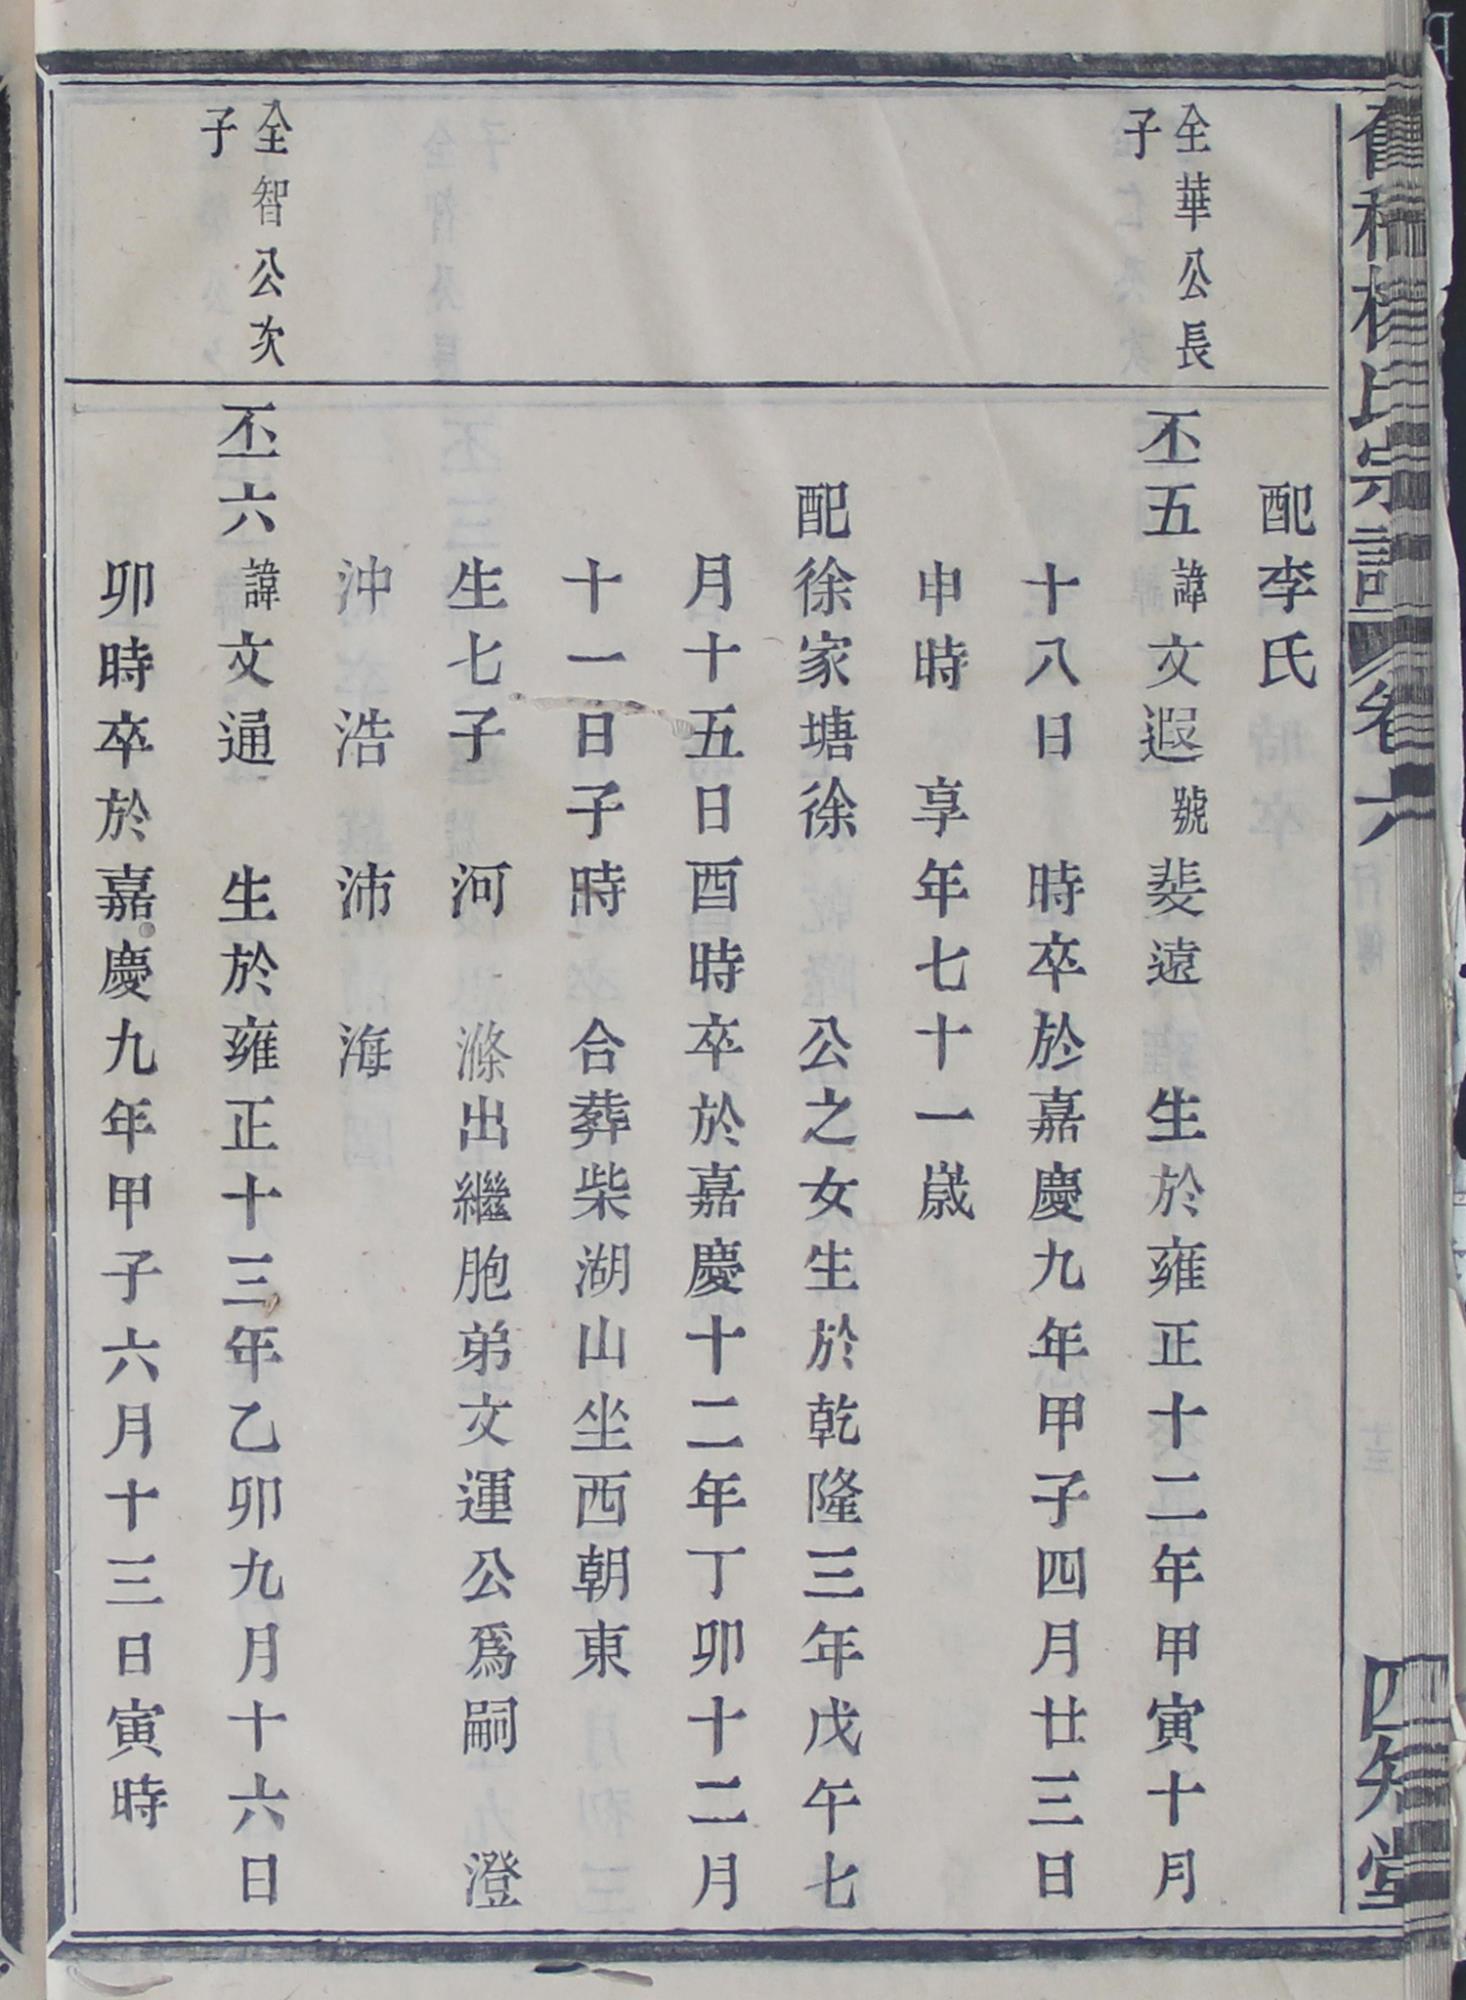 氏宗譜 卷六 四知堂
配李氏
全華公長
子
丕五諱文遐號斐遠 生於雍正十二年甲寅十月
十八日 時卒於嘉慶九年甲子四月廿三日
申時 享年七十一歲
配徐家塘徐 公之女生於乾隆三年戊午七
月十五日酉時卒於嘉慶十二年丁卯十二月
十一日子時 合葬柴湖山坐西朝東
生七子 河 滌出繼胞弟文運公爲嗣 澄
沖 浩 沛 海
全智公次
子
丕六諱文通 生於雍正十三年乙卯九月十六日
卯時卒於嘉慶九年甲子六月十三日寅時